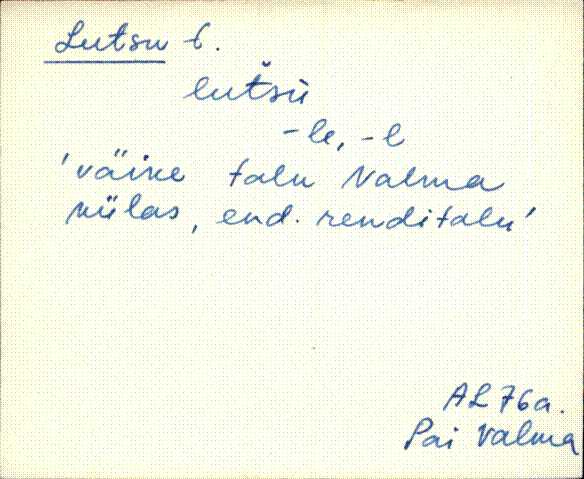 Lutsu t.
lutšü
-le, -l
'väike talu Valma
külas, end. renditalu'
AL 76a.
Pai Valma